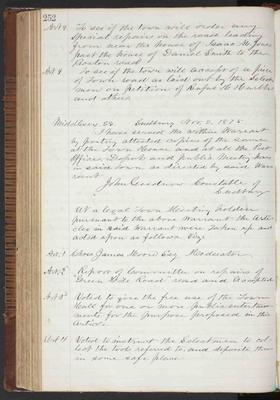 252
Art 8 To see if the town will order any
special repairs on the road leading
from near the house of Isaac H. Jones
past the house of Daniel Smith to the
Boston road
Art 9 To see if the town will accept of a piece
of Town road as laid out by the Select
men on petition of Rufus H. Hurlbut
and others
Middlesex SS Sudbury Nov. 2, 1875
I have served the within Warrant
by posting attested copies of the same
at the Town House and at all the Post
Offices, Depots and Public Meeting houses
in said town, as directed by said War
rant.
John Goodnow Constable of
Sudbury
At a legal Town Meeting holden
pursuant to the above warrant the Arti
cles in said Warrant were taken up and
acted upon as follows Viz
Art. 1 Chose James Moore Esq Moderator
Art. 2 Report of Committee on repairs of
road read and Accepted
Art 3 Voted to give the free use of the Town
Hall for one or more public entertain
ments for the purpose proposed in this
Article.
Art 4 Voted to instruct the Selectmen to col
lect the tools referred to, and deposite them
in some safe place